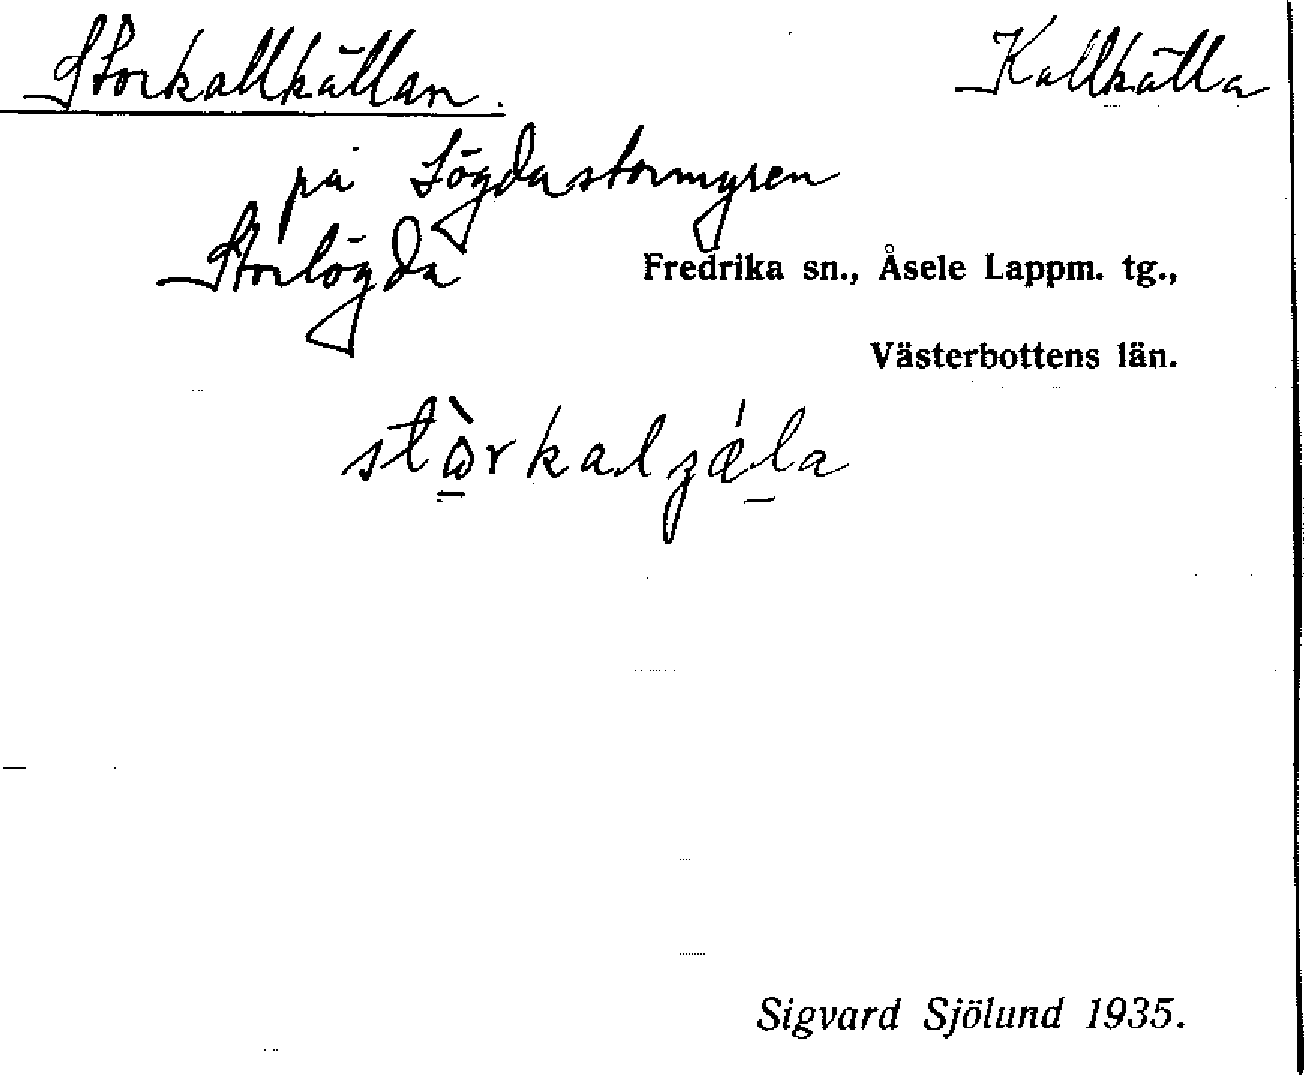 Storkallkällan. Kallkälla
på Lögdastormyren
Storlögda Fredrika sn., Åsele Lappm. tg.,
Västerbottens län.
stòrkalzǽla
Sigvard Sjölund 1935.